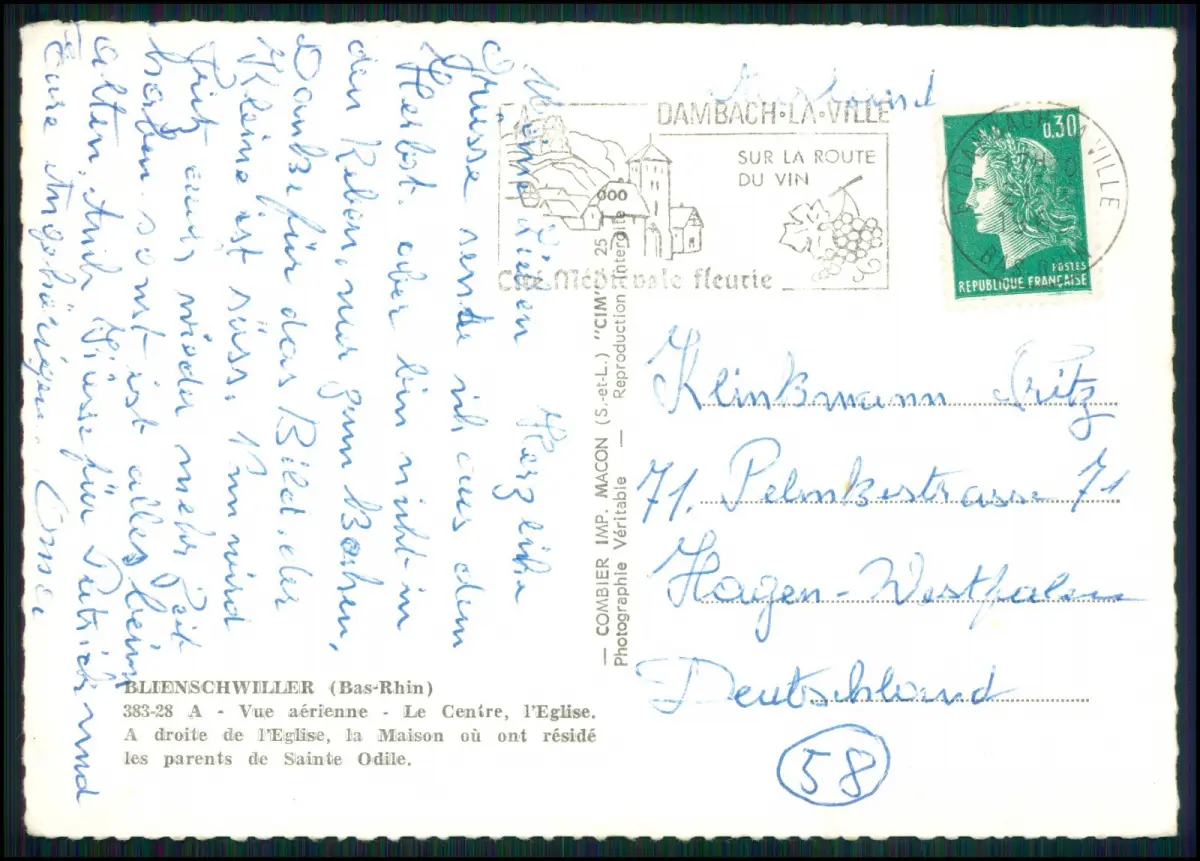 Meine Lieben Herzliche
Grüsse sende ich aus dem
Herbst. aber bin nicht in
den Reben, nur zum Kochen,
Danke für das Bild. der
Kleine ist süss. Nun wird
Fritz auch wieder mehr Zeit
haben sonst ist alles beim
alten, Auch Grüsse für Patrick und
Eure Angehörigen.
DAMBACH·LA·VILLE
SUR LA ROUTE
DU VIN
Cité Médiévale fleurie
DAMBACH LA VILLE
BAS RHIN
0,30
POSTES
REPUBLIQUE FRANÇAISE
— COMBIER IMP. MACON (S.-et-L.) "CIM" 25
Photographie Véritable — Reproduction Interdite
Klinkmann Fritz
71. Pelmkestrasse 71
Hagen-Westfalen
Deutschland
58
BLIENSCHWILLER (Bas-Rhin)
383-28 A - Vue aérienne - Le Centre, l'Eglise.
A droite de l'Eglise, la Maison où ont résidé
les parents de Sainte Odile.